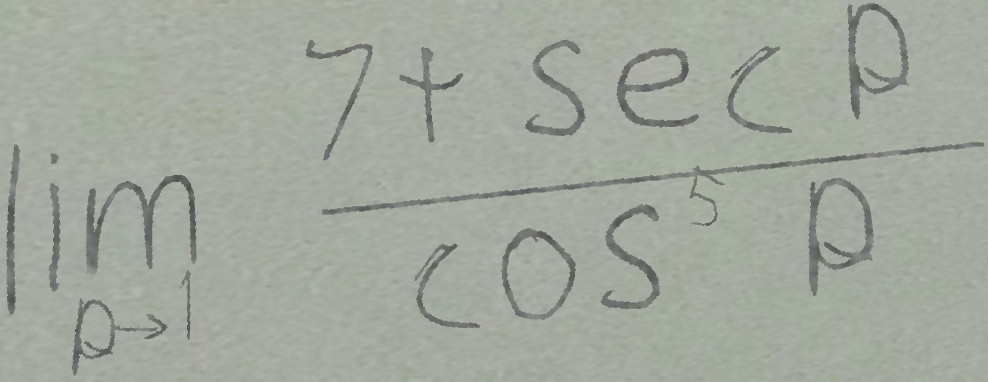 \lim_{p \to 1} \frac{7 + \sec p}{\cos^5 p}